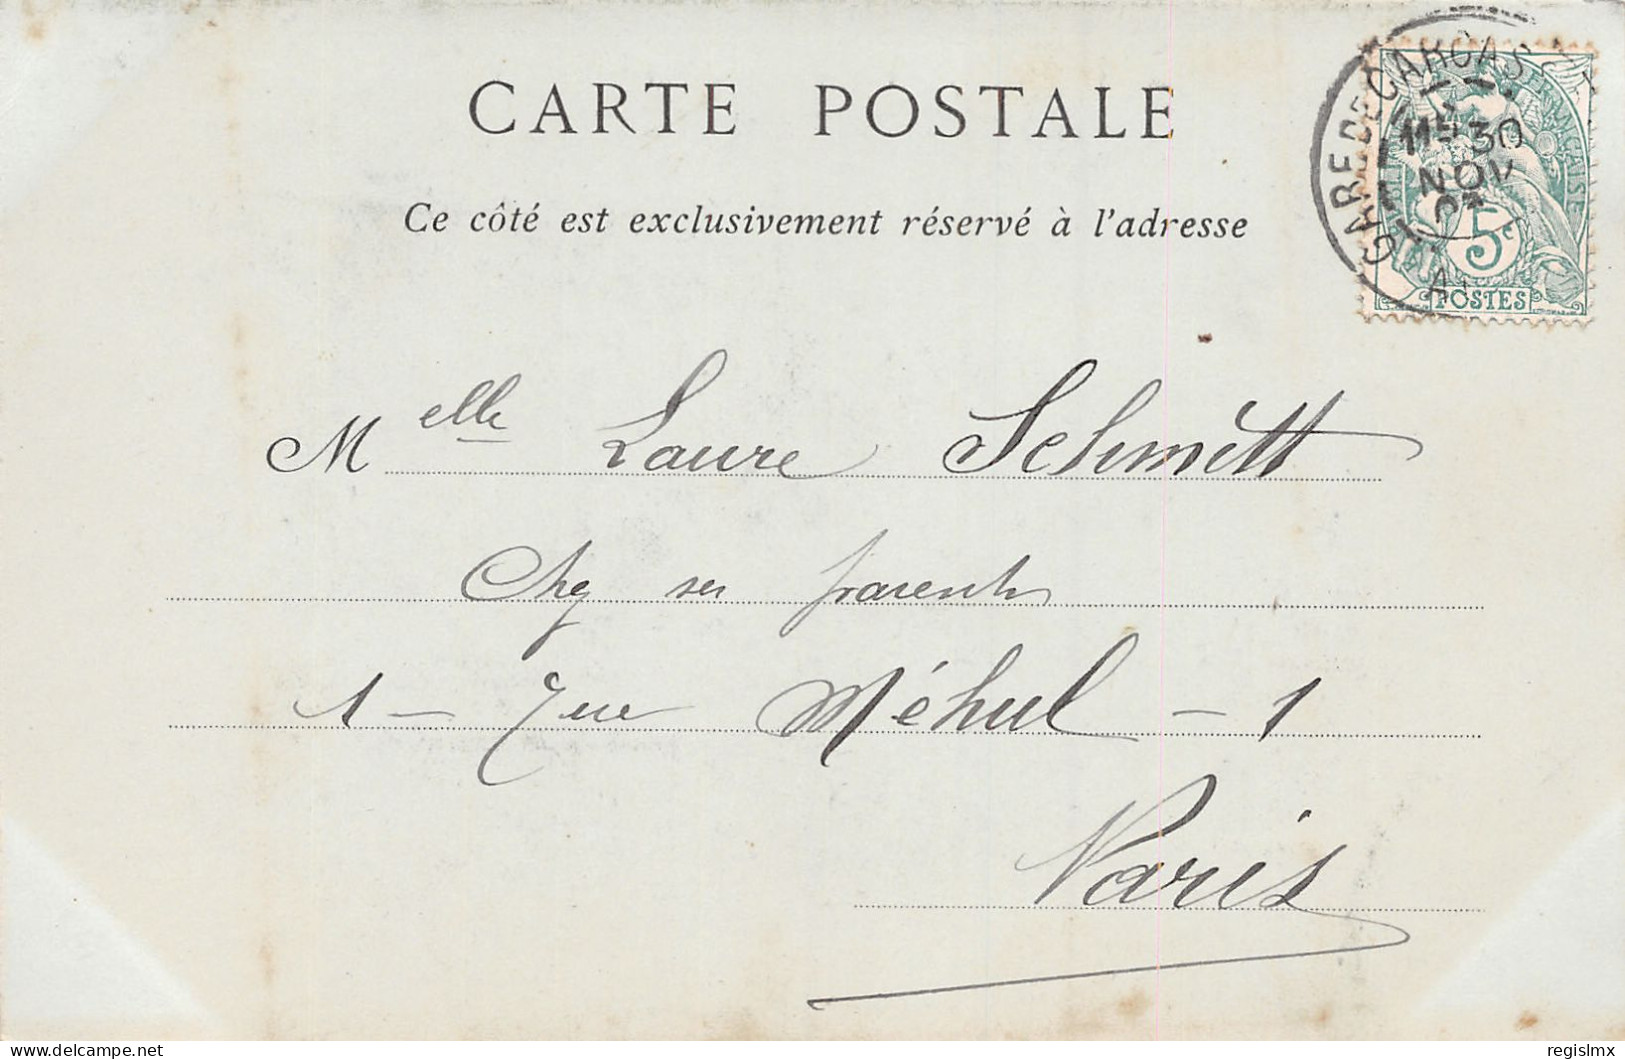 CARTE POSTALE
Ce côté est exclusivement réservé à l'adresse
GARE DE CARCAS
11 30
NOV
FRANÇAISE
5c
POSTES
Melle Laure Schmitt
Chez ses parents
1 - rue Méhul - 1
Paris
delcampe.net
regislmx